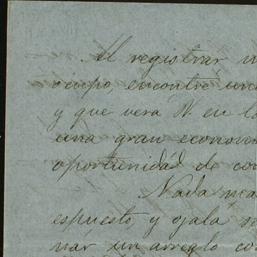 Al registrar
ocupo, encontré
y que vera V. en
una gran econom
oportunidad de co
Nada ma
espuesto y ojala
nar un arreglo co